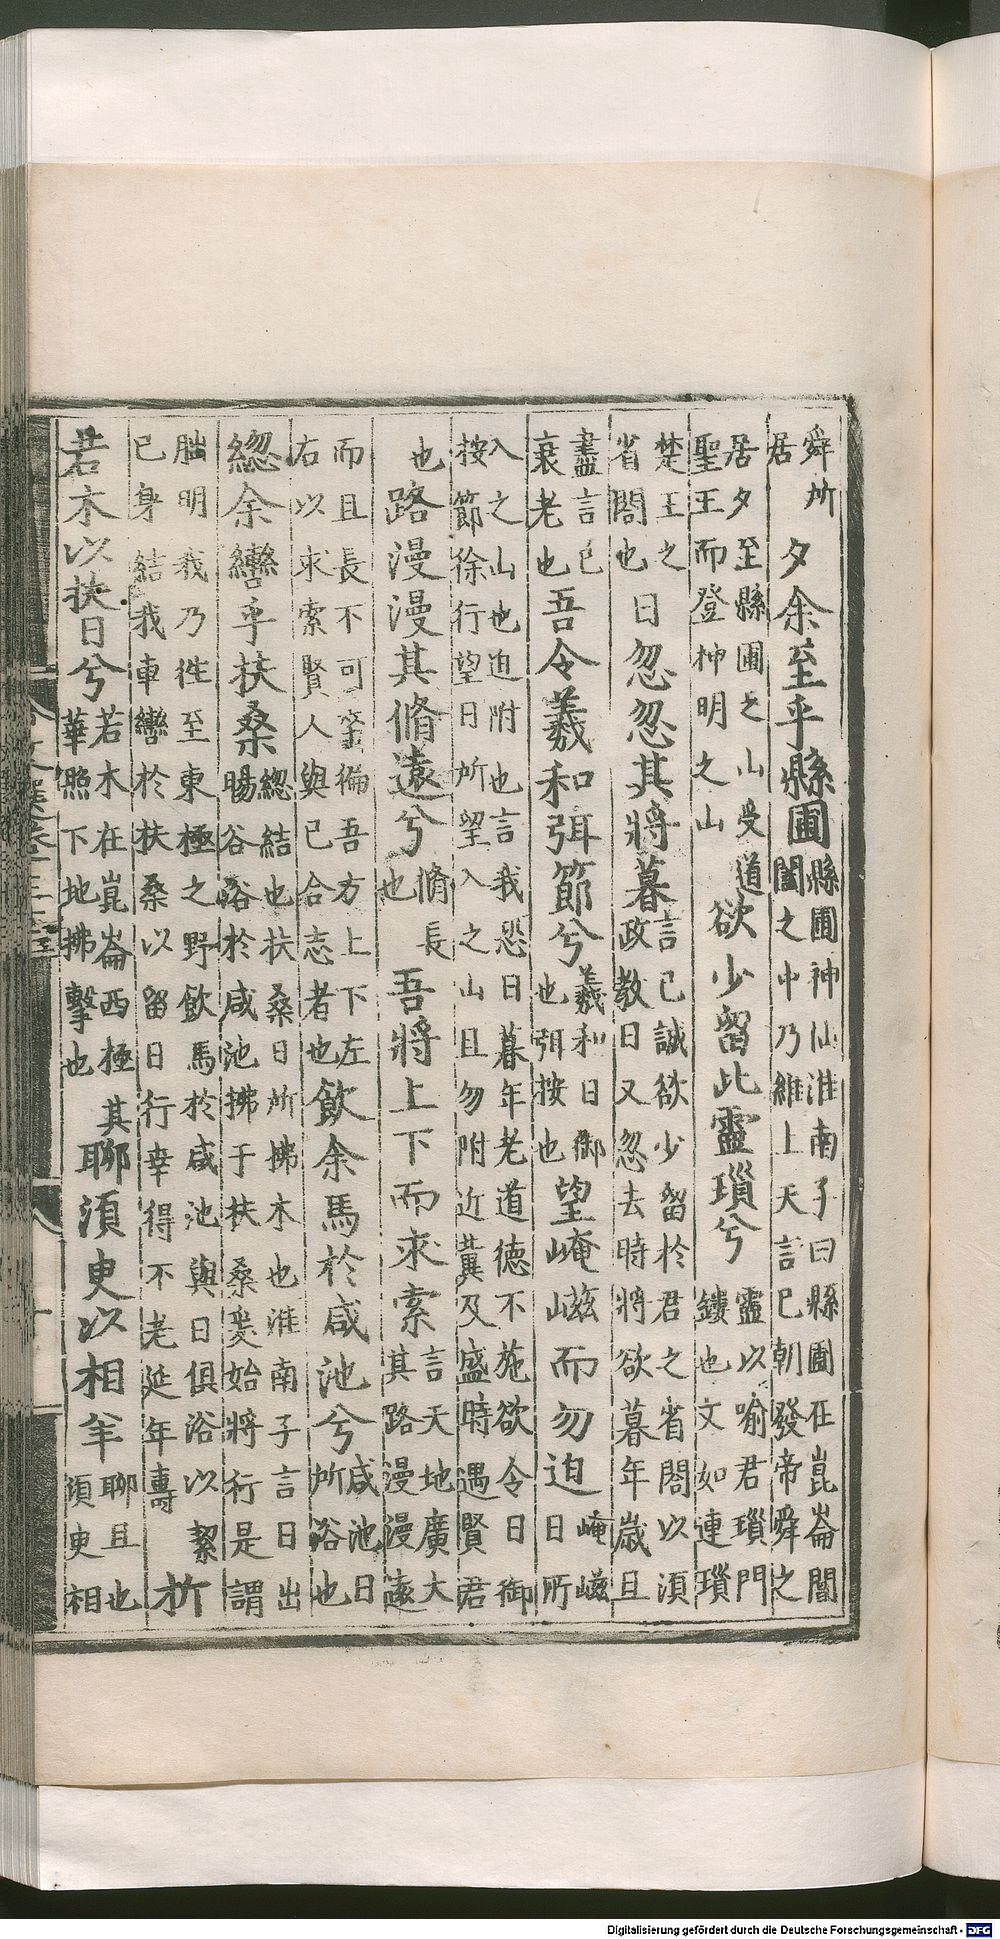 舜所居夕余至乎縣圃縣圃神仙淮南子曰縣圃在崑崙閶闔之中乃維上天言己朝發帝舜之
居夕至縣圃之山受道聖王而登神明之山欲少留此靈瑣兮靈以喻君瑣門鏤也文如連瑣
楚王之省閤也言己誠欲少留於君之省閤以須政教日又忽去時將欲暮年歲且
盡言己衰老也吾令羲和弭節兮羲和日御也弭按也望崦嵫而勿迫崦嵫日所
入之山也迫附也言我恐日暮年老道德不施欲令日御按節徐行望日所望入之山且勿附近冀及盛時遇賢君
也路漫漫其脩遠兮脩長也吾將上下而求索言天地廣大其路漫漫遠
而且長不可卒徧吾方上下左右以求索賢人與己合志者也飲余馬於咸池兮咸池日所浴也
緫余轡乎扶桑緫結也扶桑日所拂木也淮南子言日出暘谷浴於咸池拂于扶桑爰始將行是謂
朏明我乃往至東極之野飲馬於咸池與日俱浴以絜己身結我車轡於扶桑以留日行幸得不老延年壽折
若木以拂日兮若木在崑崙西極其華照下地拂擊也聊須臾以相羊聊且也須臾相
Digitalisierung gefördert durch die Deutsche Forschungsgemeinschaft - DFG